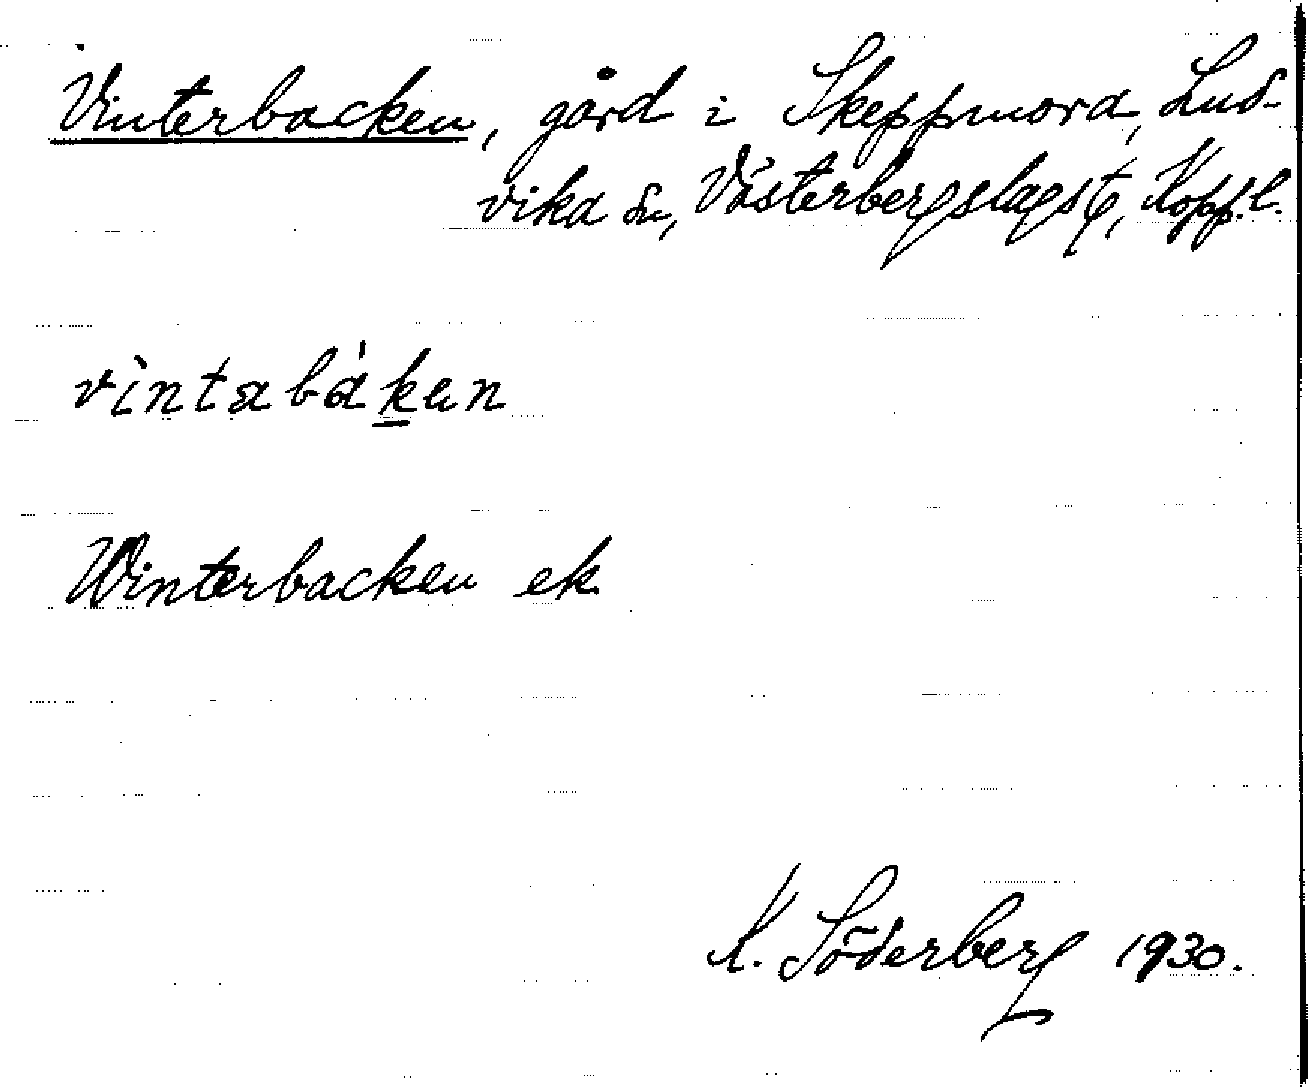 Vinterbacken, gård i Skeppmora, Lud-
vika sn, Västerbergslags t, Kopp. l.
vìntabákən
Winterbacken ek.
K. Söderberg 1930.